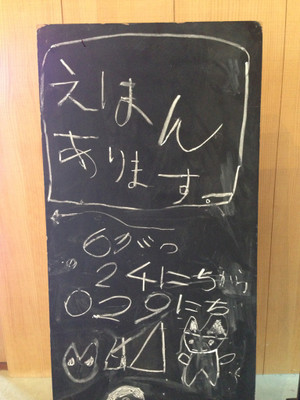 えほん
あります。
6がつ
24にちがつ
029にち